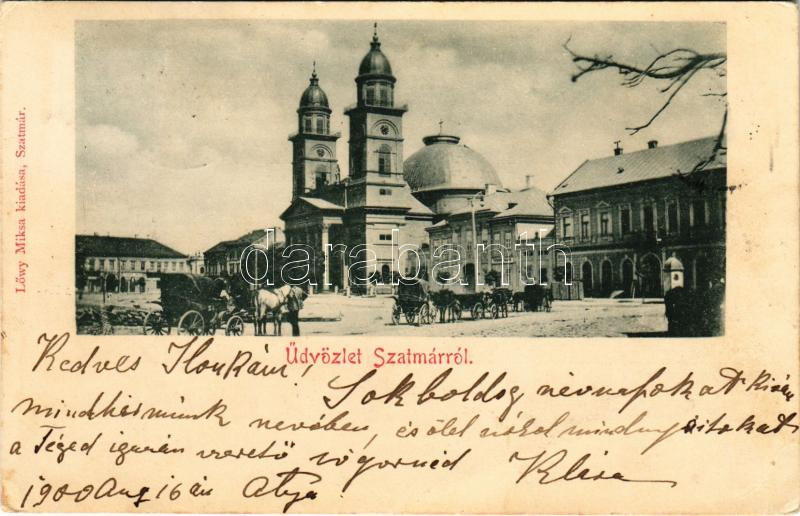 Lőwy Miksa kiadása, Szatmár.
darabanth
Üdvözlet Szatmárról.
Kedves Ilonkám!
Sok boldog névnapokat kíván
mindhármunk nevében, és ölel csókol mindnyájatokat
a Téged igazán szerető sógornéd Klára
1900 Aug 16án